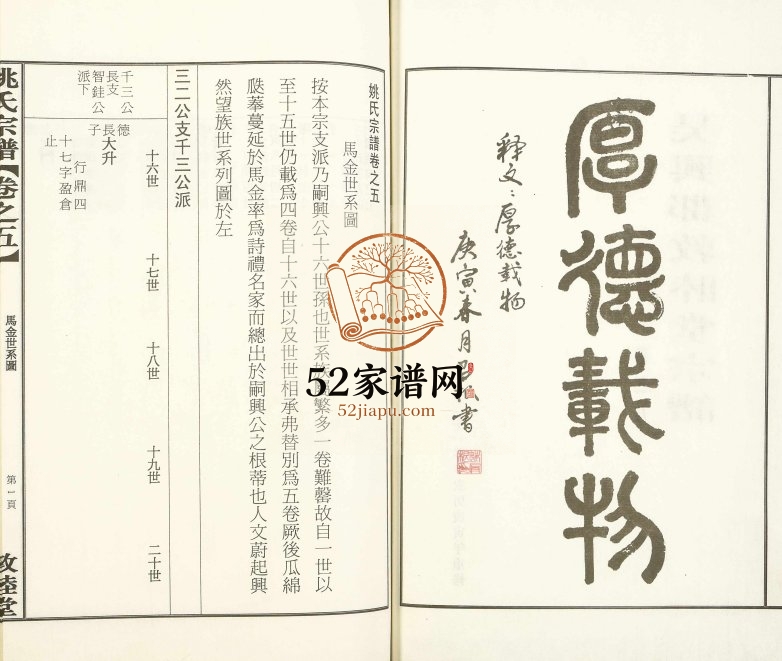 厚德載物
释文：厚德载物
庚寅春月
書
姚氏宗譜卷之五
馬金世系圖
按本宗支派乃嗣興公十六世孫也世系
繁多一卷難罄故自一世以
至十五世仍載爲四卷自十六世以及世世相承弗替別爲五卷厥後瓜綿
瓞菶蔓延於馬金率爲詩禮名家而總出於嗣興公之根蒂也人文蔚起興
然望族世系列圖於左
三二公支千三公派
十六世
十七世
十八世
十九世
二十世
千三公
長支
智銈公
派下
德長子
大升
行鼎四
十七字盈倉
止
姚氏宗譜【卷之五】
馬金世系圖
第1頁
敦睦堂
52家谱网
52jiapu.com